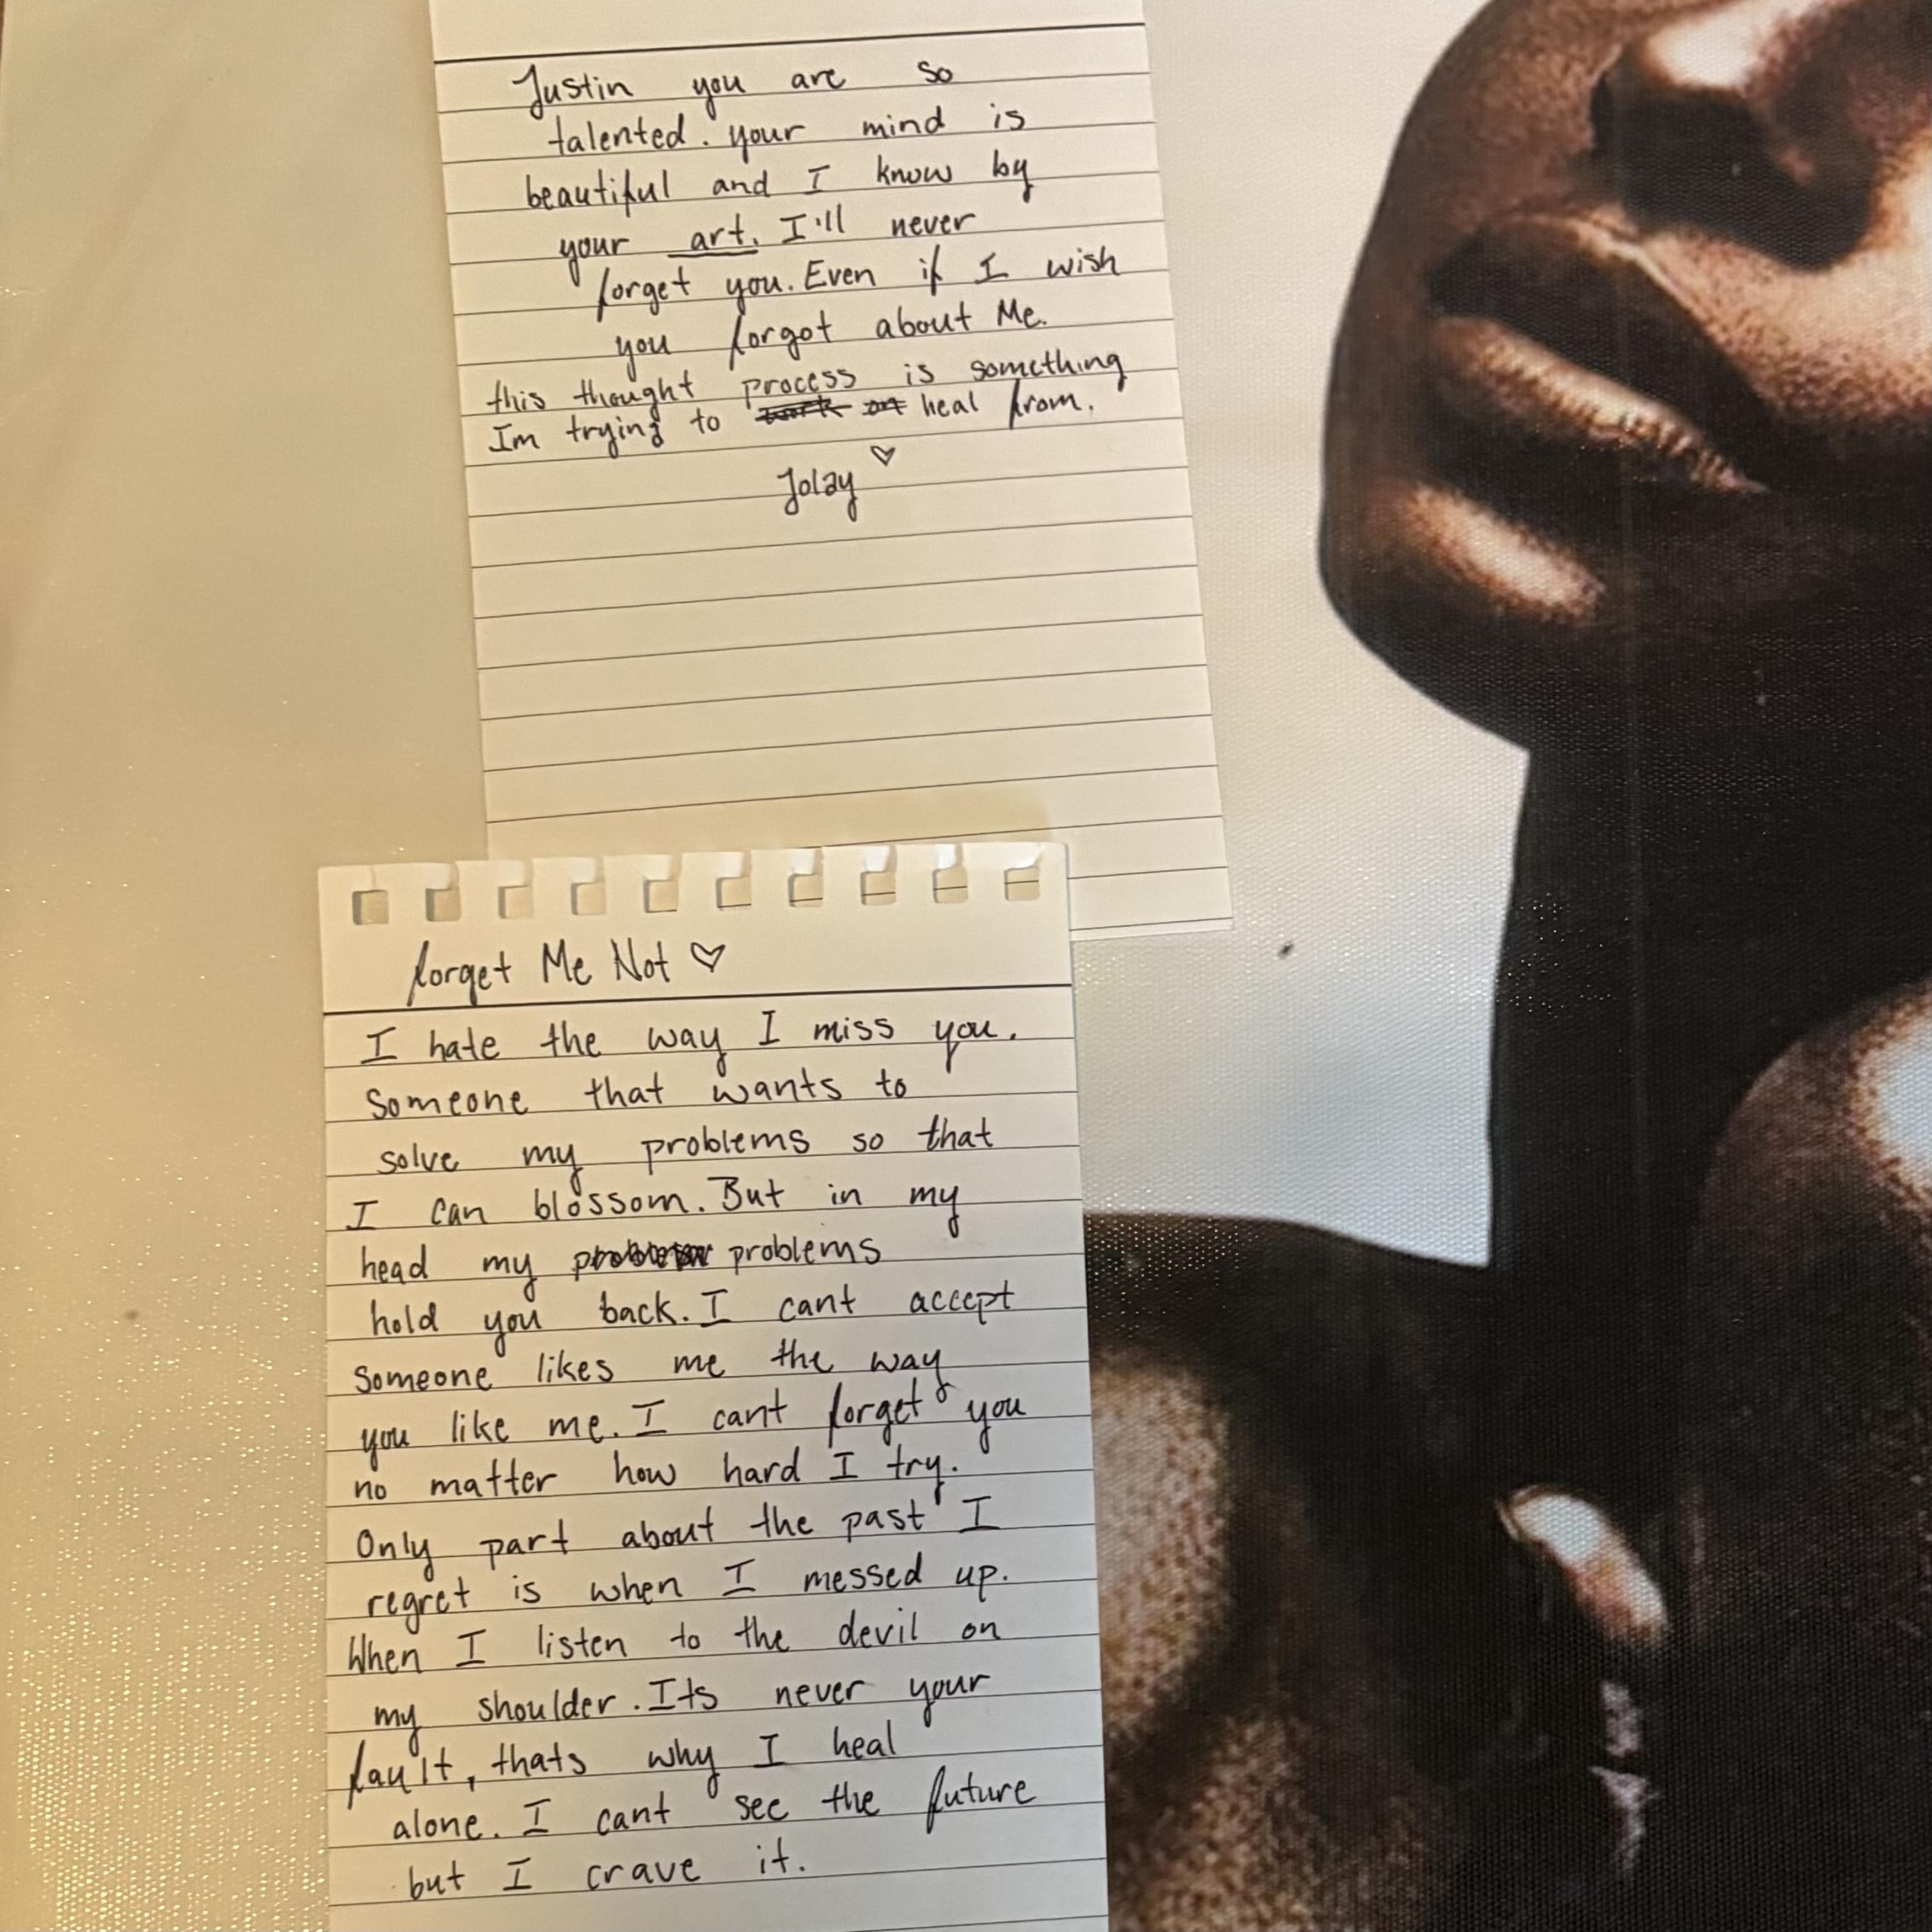 Justin you are so
talented. your mind is
beautiful and I know by
your art. I'll never
forget you. Even if I wish
you forgot about Me.
this thought process is something
Im trying to work on heal from.
Jolay ♡
forget Me Not ♡
I hate the way I miss you.
Someone that wants to
solve my problems so that
I can blossom. But in my
head my problems
hold you back. I cant accept
someone likes me the way
you like me. I cant forget you
no matter how hard I try.
Only part about the past I
regret is when I messed up.
When I listen to the devil on
my shoulder. Its never your
fault, thats why I heal
alone. I cant see the future
but I crave it.